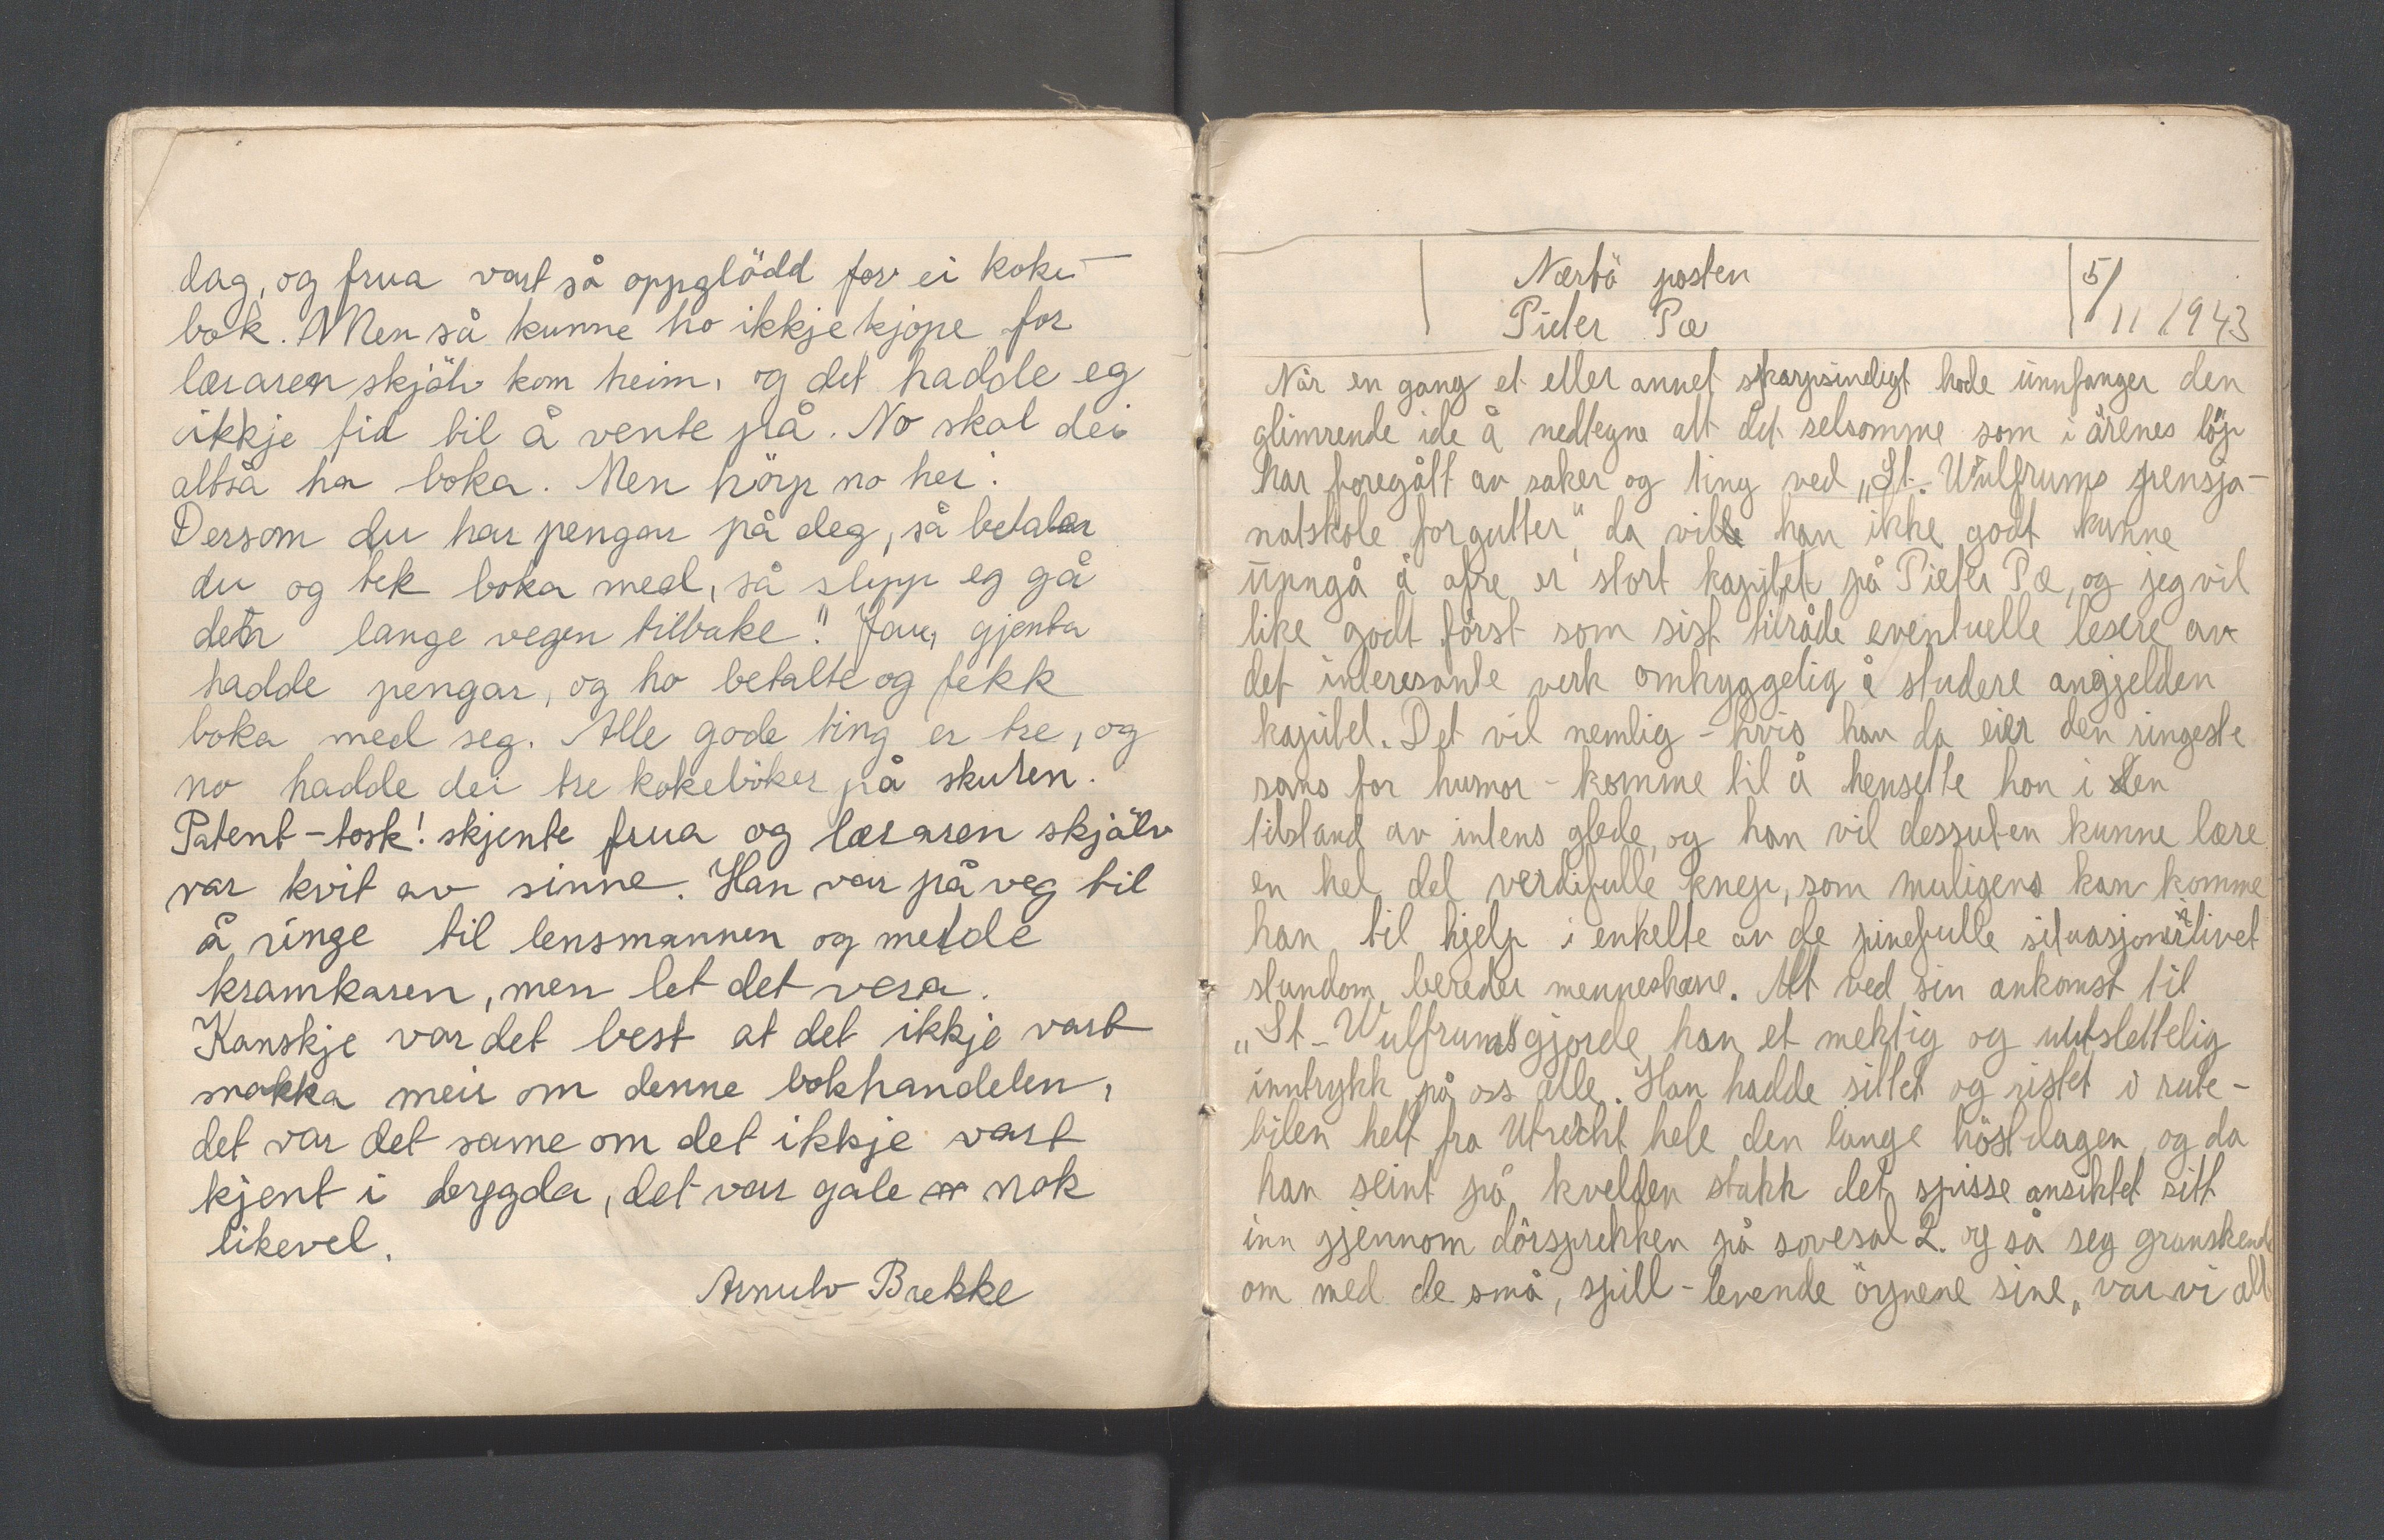 dag, og frua vart så oppglödd for ei koke-
bok. Men så kunne ho ikkje kjøpe for
læraren skjölv kom heim, og det hadde eg
ikkje tid til å vente på. No skal dei
altså ha boka. Men hörp no her:
Dersom du har pengar på deg, så betaler
du og tek boka med, så slepp eg gå
den lange vegen tilbake!" Jau, gjenta
hadde pengar, og ho betalte og fekk
boka med seg. Alle gode ting er tre, og
no hadde dei tre kokeböker på skulen.
Patent-tosk! skjente frua og læraren skjälv
var kvit av sinne. Han var på veg til
å ringe til lensmannen og melde
kramkaren, men let det vera.
Kanskje var det best at det ikkje vart
snakka meir om denne bokhandelen,
det var det same om det ikkje vart
kjent i bygda, det var gale nok
likevel.
Arnulv Brekke
Nærbö posten
Pieter Pæ
5/11 1943
Når en gang et eller annet skarpsindigt hode unnfanger den
glimrende ide å nedtegne alt det selsomme som i årenes löp
har foregått av saker og ting ved „St. Wulfrums pensjo-
natskole for gutter", da ville han ikke godt kunne
unngå å ofre et stort kapitet på Pieter Pæ, og jeg vil
like godt först som sist tilråde eventuelle lesere av
det interesante verk omhyggelig å studere angjelden
kapitel. Det vil nemlig - hvis han da eier den ringeste
sans for humor - komme til å hensette han i den
tilstand av intens glede, og han vil dessuten kunne lære
en hel del verdifulle knep, som muligens kan komme
han til hjelp i enkelte av de pinefulle situasjoner livet
stundom bereder menneskene. Alt ved sin ankomst til
„St-Wulfrums gjorde han et mektig og uutslettelig
inntrykk på oss alle. Han hadde sittet og ristet i rute-
bilen helt fra Utrecht hele den lange höstdagen, og da
han seint på kvelden stakk det spisse ansiktet sitt
inn gjennom dörsprekken på sovesal 2. og så seg granskende
om med de små, spill-levende öynene sine, var vi all